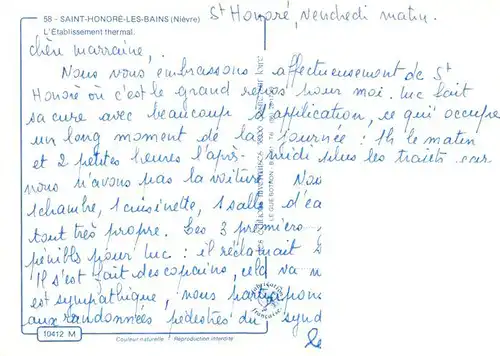 58 - SAINT-HONORÉ-LES-BAINS (Nièvre)
L'Établissement thermal.
St Honoré, Vendredi matin.
chère marraine,
Nous vous embrassons affectueusement de St
Honoré où c'est le grand repos pour moi. Luc fait
sa cure avec beaucoup d'application, ce qui occupe
un long moment de la journée : 1h le matin
et 2 petites heures l'après-midi plus les trajets car
nous n'avons pas la voiture. Nou
1 chambre, 1 cuisinette, 1 salle d'ea
tout très propre. Les 3 premiers
pénibles pour Luc : il réclamait
Il s'est fait des copains, cela va m
est sympathique, nous participons
aux randonnées pédestres du synd
le
10412 M
Couleur naturelle / Reproduction interdite